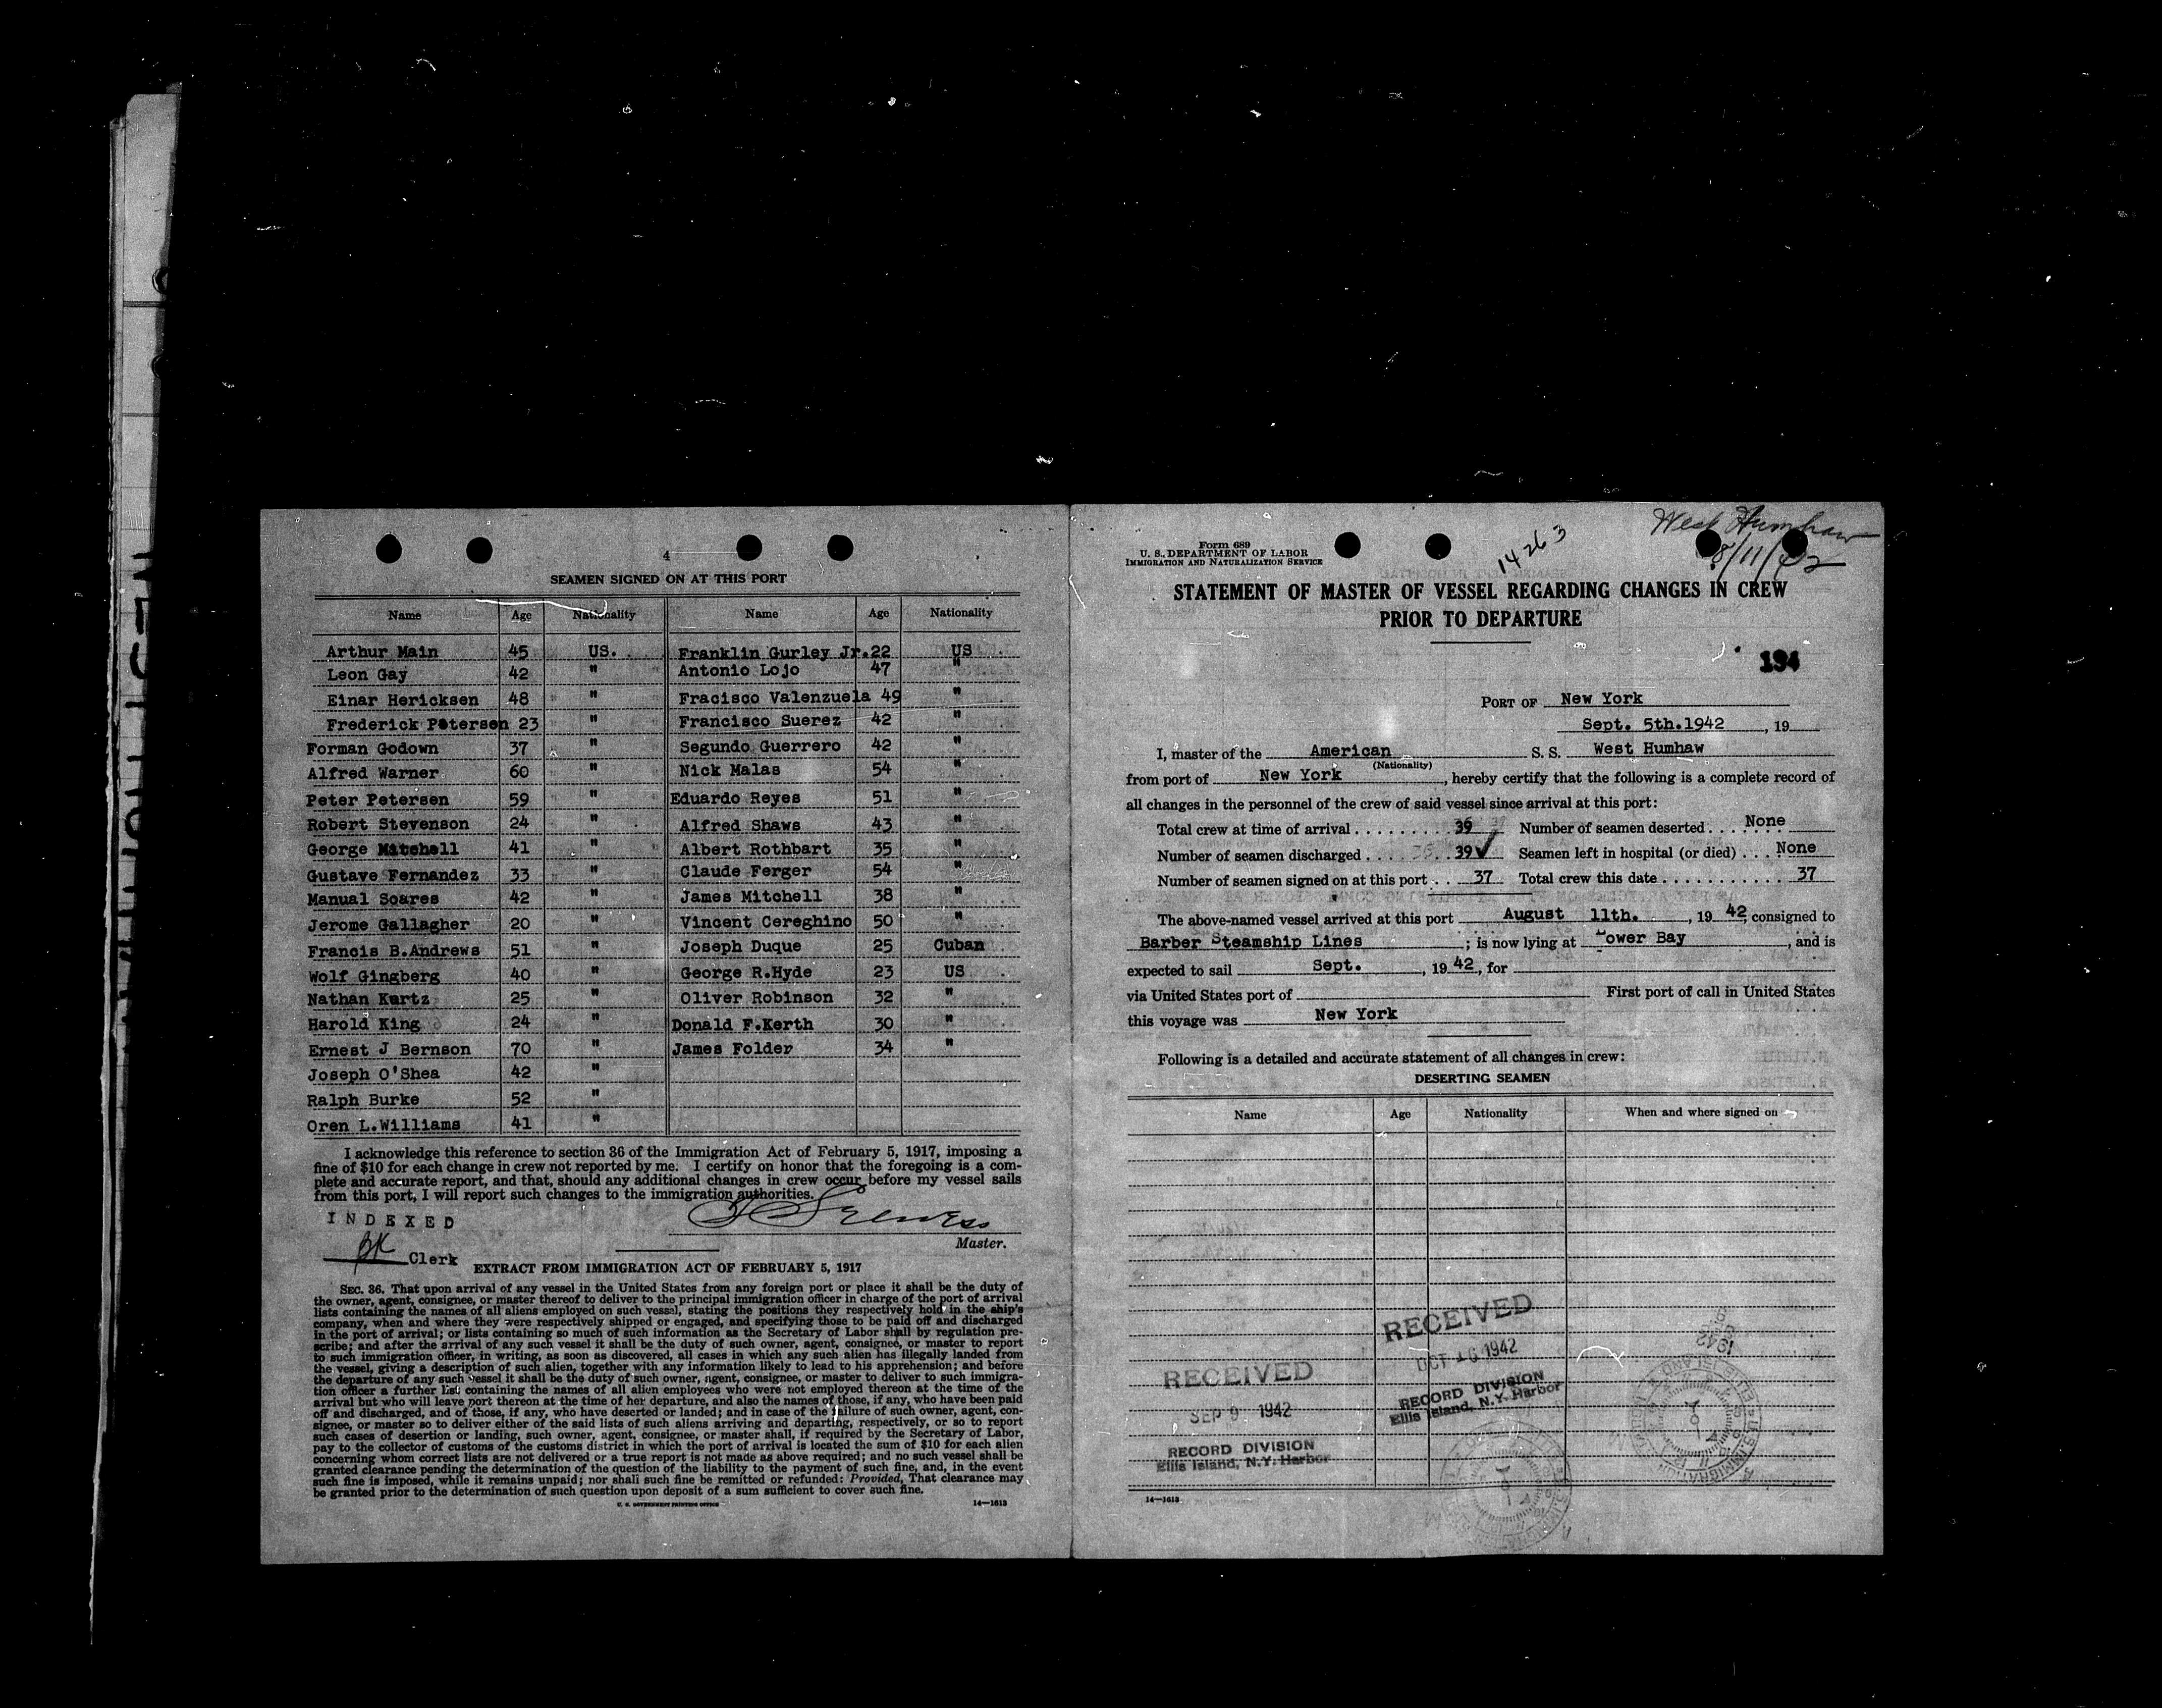 4
SEAMEN SIGNED ON AT THIS PORT
Name Age Nationality Name Age Nationality
Arthur Main 45 US. Franklin Gurley Jr.22 US
Leon Gay 42 " Antonio Lojo 47 "
Einar Hericksen 48 " Fracisco Valenzuela 49 "
Frederick Petersen 23 " Francisco Suerez 42 "
Forman Godown 37 " Segundo Guerrero 42 "
Alfred Warner 60 " Nick Malas 54 "
Peter Petersen 59 " Eduardo Reyes 51 "
Robert Stevenson 24 " Alfred Shaws 43 "
George Mitchell 41 " Albert Rothbart 35 "
Gustave Fernandez 33 " Claude Ferger 54 "
Manual Soares 42 " James Mitchell 38 "
Jerome Gallagher 20 " Vincent Cereghino 50 "
Francis B.Andrews 51 " Joseph Duque 25 Cuban
Wolf Gingberg 40 " George R.Hyde 23 US
Nathan Kurtz 25 " Oliver Robinson 32 "
Harold King 24 " Donald F.Kerth 30 "
Ernest J Bernson 70 " James Folder 34 "
Joseph O'Shea 42 "
Ralph Burke 52 "
Oren L.Williams 41 "
I acknowledge this reference to section 36 of the Immigration Act of February 5, 1917, imposing a
fine of $10 for each change in crew not reported by me. I certify on honor that the foregoing is a com-
plete and accurate report, and that, should any additional changes in crew occur before my vessel sails
from this port, I will report such changes to the immigration authorities.
INDEXED
Master.
BK Clerk
EXTRACT FROM IMMIGRATION ACT OF FEBRUARY 5, 1917
SEC. 36. That upon arrival of any vessel in the United States from any foreign port or place it shall be the duty of
the owner, agent, consignee, or master thereof to deliver to the principal immigration officer in charge of the port of arrival
lists containing the names of all aliens employed on such vessel, stating the positions they respectively hold in the ship's
company, when and where they were respectively shipped or engaged, and specifying those to be paid off and discharged
in the port of arrival; or lists containing so much of such information as the Secretary of Labor shall by regulation pre-
scribe; and after the arrival of any such vessel it shall be the duty of such owner, agent, consignee, or master to report
to such immigration officer, in writing, as soon as discovered, all cases in which any such alien has illegally landed from
the vessel, giving a description of such alien, together with any information likely to lead to his apprehension; and before
the departure of any such vessel it shall be the duty of such owner, agent, consignee, or master to deliver to such immigra-
tion officer a further list containing the names of all alien employees who were not employed thereon at the time of the
arrival but who will leave port thereon at the time of her departure, and also the names of those, if any, who have been paid
off and discharged, and of those, if any, who have deserted or landed; and in case of the failure of such owner, agent, con-
signee, or master so to deliver either of the said lists of such aliens arriving and departing, respectively, or so to report
such cases of desertion or landing, such owner, agent, consignee, or master shall, if required by the Secretary of Labor,
pay to the collector of customs of the customs district in which the port of arrival is located the sum of $10 for each alien
concerning whom correct lists are not delivered or a true report is not made as above required; and no such vessel shall be
granted clearance pending the determination of the question of the liability to the payment of such fine, and, in the event
such fine is imposed, while it remains unpaid; nor shall such fine be remitted or refunded: Provided, That clearance may
be granted prior to the determination of such question upon deposit of a sum sufficient to cover such fine.
U. S. GOVERNMENT PRINTING OFFICE 14—1613
West Humhaw
8/11/42
14263
Form 689
U. S. DEPARTMENT OF LABOR
IMMIGRATION AND NATURALIZATION SERVICE
STATEMENT OF MASTER OF VESSEL REGARDING CHANGES IN CREW
PRIOR TO DEPARTURE
194
PORT OF New York
Sept. 5th.1942, 19
I, master of the American S. S. West Humhaw
(Nationality)
from port of New York, hereby certify that the following is a complete record of
all changes in the personnel of the crew of said vessel since arrival at this port:
Total crew at time of arrival . . . . . . . . . 39 Number of seamen deserted . . . . None
Number of seamen discharged . . . . 39 ✓ Seamen left in hospital (or died) . . . None
Number of seamen signed on at this port . . 37 Total crew this date . . . . . . . . . . . 37
The above-named vessel arrived at this port August 11th., 19 42, consigned to
Barber Steamship Lines; is now lying at Lower Bay, and is
expected to sail Sept., 19 42, for
via United States port of First port of call in United States
this voyage was New York
Following is a detailed and accurate statement of all changes in crew:
DESERTING SEAMEN
Name Age Nationality When and where signed on
RECEIVED
OCT 16 1942
RECORD DIVISION
Ellis Island, N.Y. Harbor
RECEIVED
SEP 9 1942
RECORD DIVISION
Ellis Island, N.Y. Harbor
14—1613